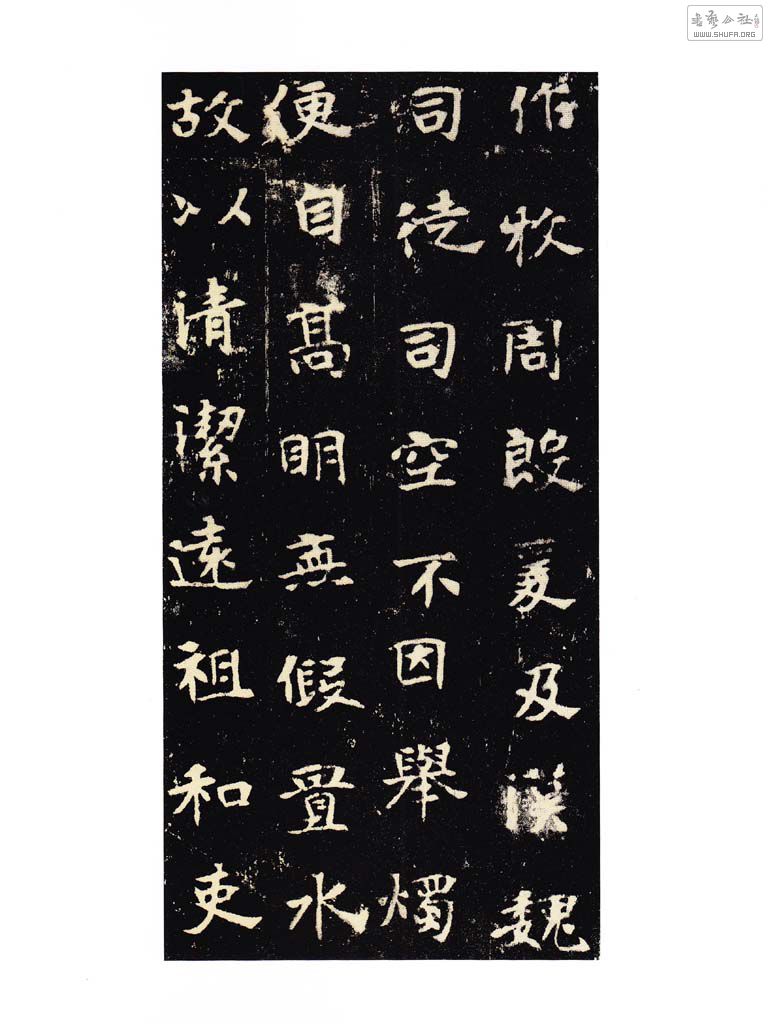 書藝公社
WWW.SHUFA.ORG
作牧周殷爰及漢魏
司徒司空不因舉燭
便自高明無假置水
故以清潔遠祖和吏